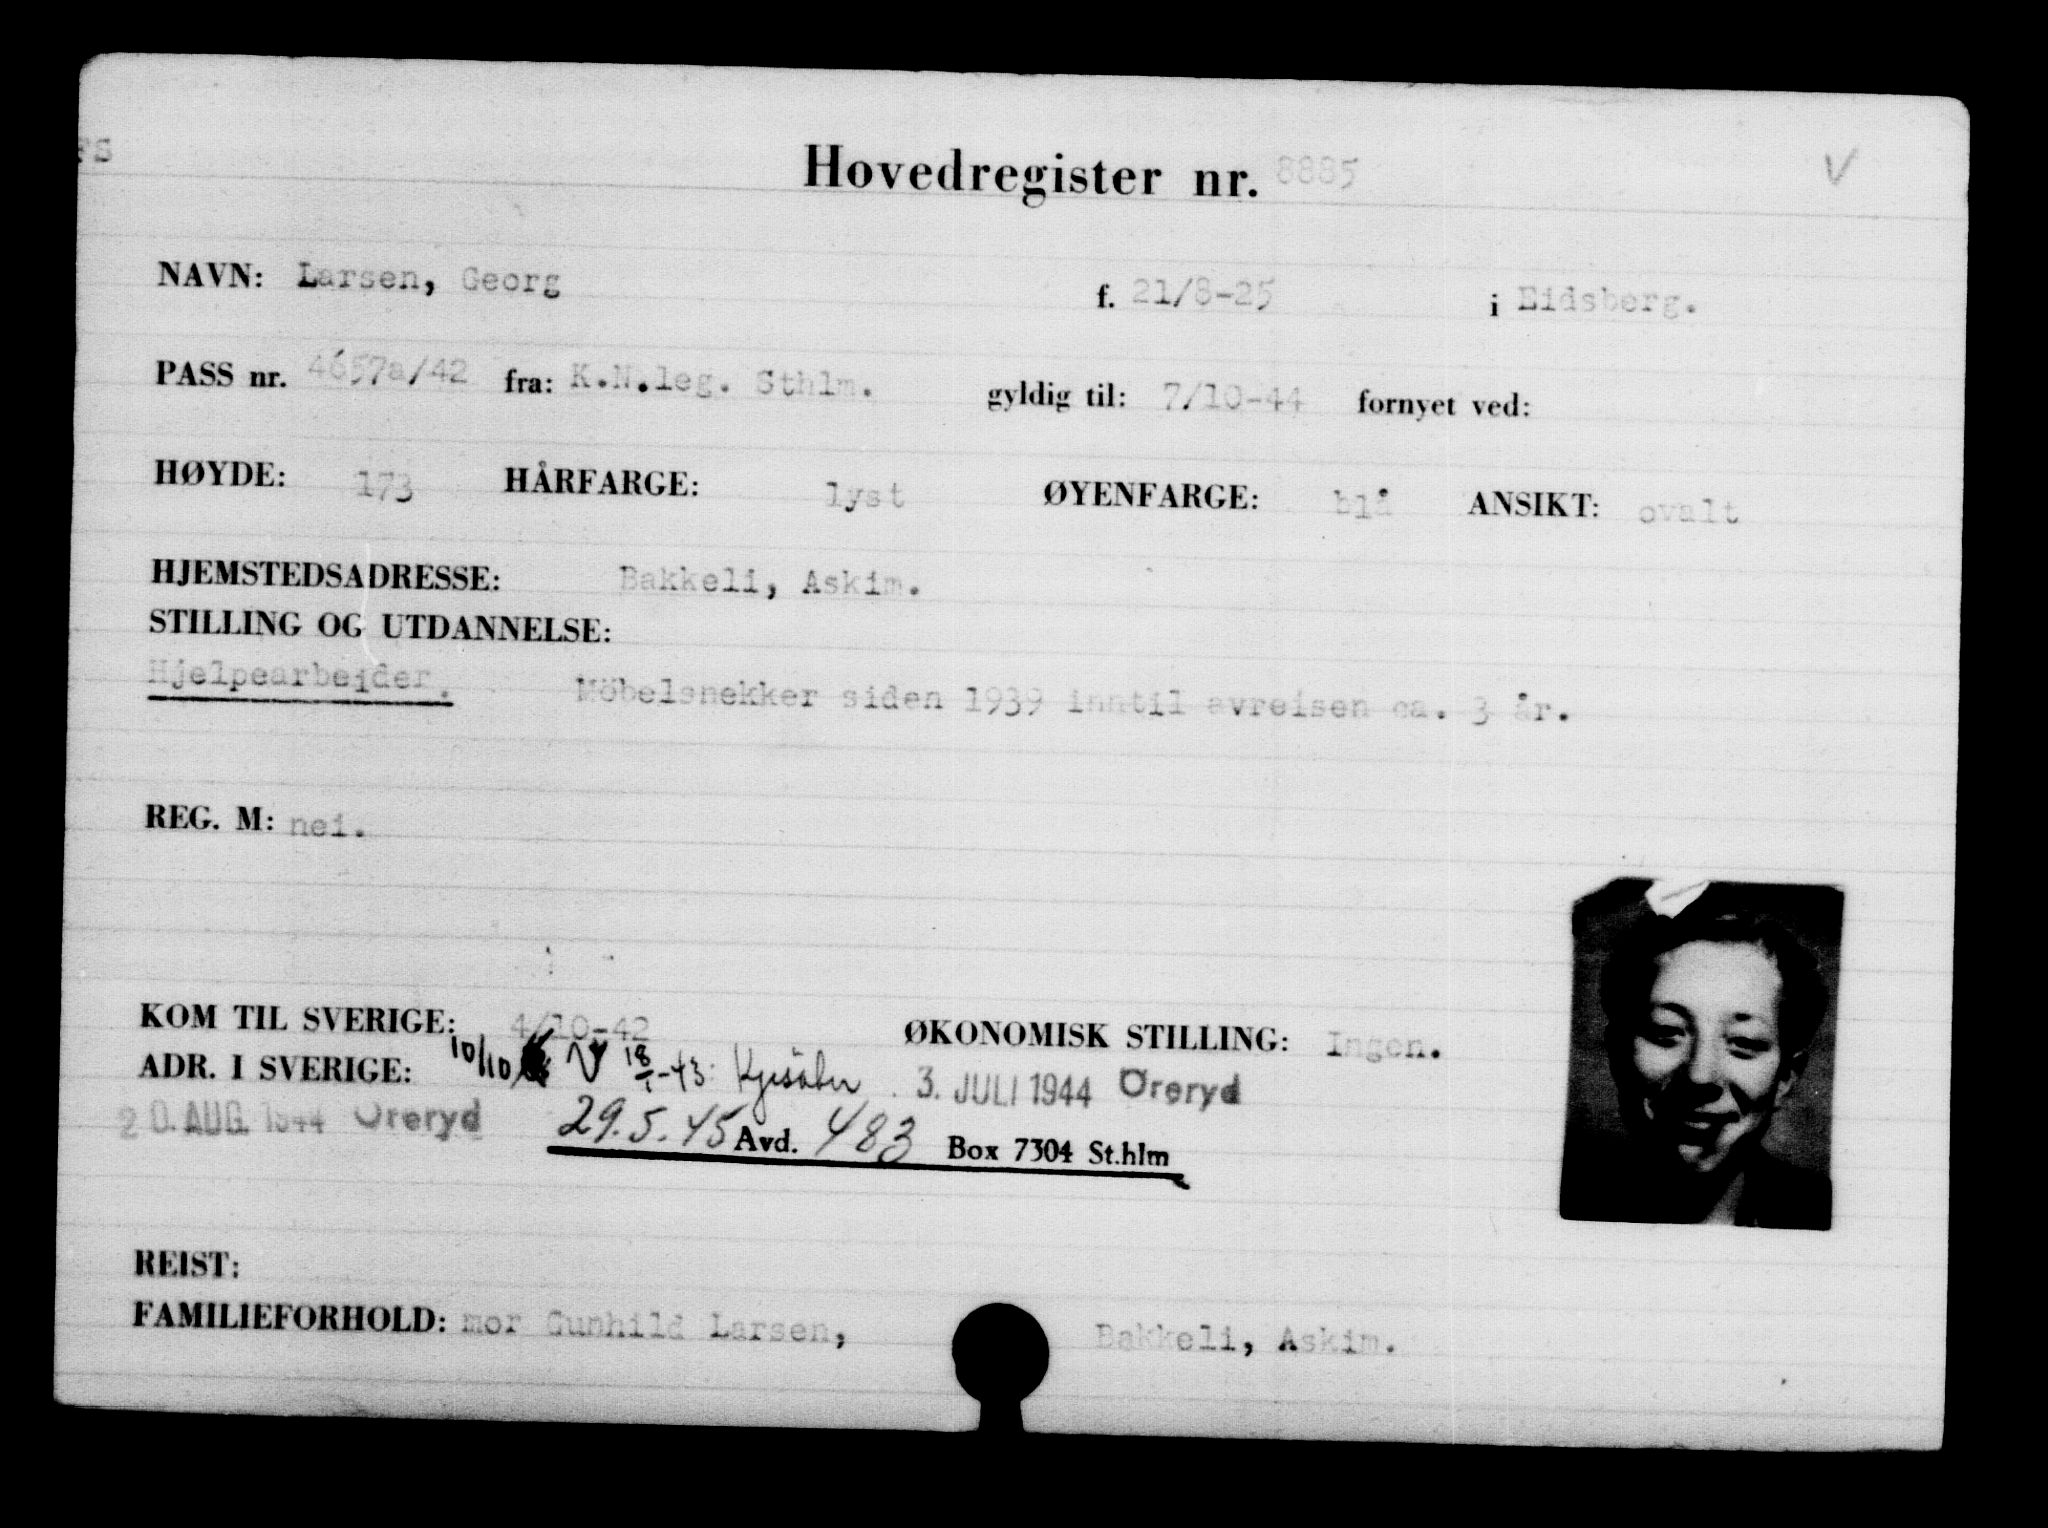 Hovedregister nr. 8885 V
NAVN: Larsen, Georg f. 21/8-25 i Eidsberg.
PASS nr. 4657a/42 fra: K.N.leg. Sthlm. gyldig til: 7/10-44 fornyet ved:
HØYDE: 173 HÅRFARGE: lyst ØYENFARGE: blå ANSIKT: ovalt
HJEMSTEDSADRESSE: Bakkeli, Askim.
STILLING OG UTDANNELSE:
Hjelpearbeider. Möbelsnekker siden 1939 inntil avreisen ca. 3 år.
REG. M: nei.
KOM TIL SVERIGE: 4/10-42 ØKONOMISK STILLING: Ingen.
ADR. I SVERIGE: 10/10 18/1-43. Kjesäter 3. JULI 1944 Öreryd
20. AUG. 1944 Öreryd 29.5.45 Avd. 483 Box 7304 St.hlm
REIST:
FAMILIEFORHOLD: mor Gunhild Larsen, Bakkeli, Askim.